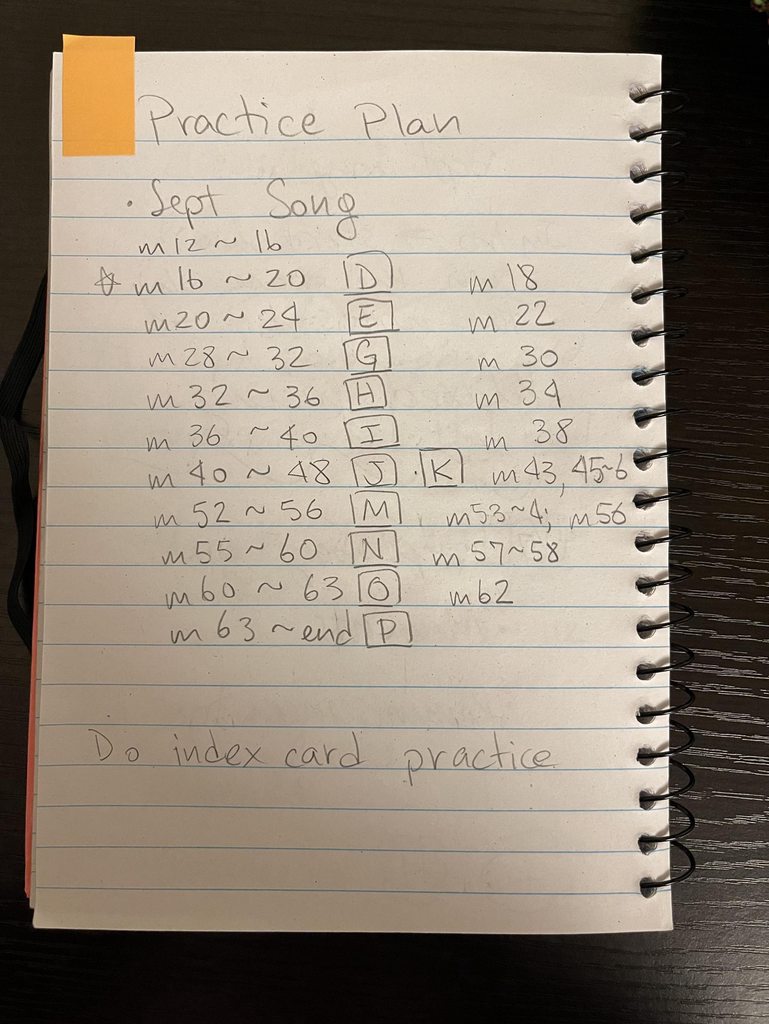 Practice Plan
· Sept Song
m 12 ~ 16
☆ m 16 ~ 20 D m 18
m 20 ~ 24 E m 22
m 28 ~ 32 G m 30
m 32 ~ 36 H m 34
m 36 ~ 40 I m 38
m 40 ~ 48 J · K m 43, 45~6
m 52 ~ 56 M m 53~4; m 56
m 55 ~ 60 N m 57~58
m 60 ~ 63 O m 62
m 63 ~ end P
Do index card practice